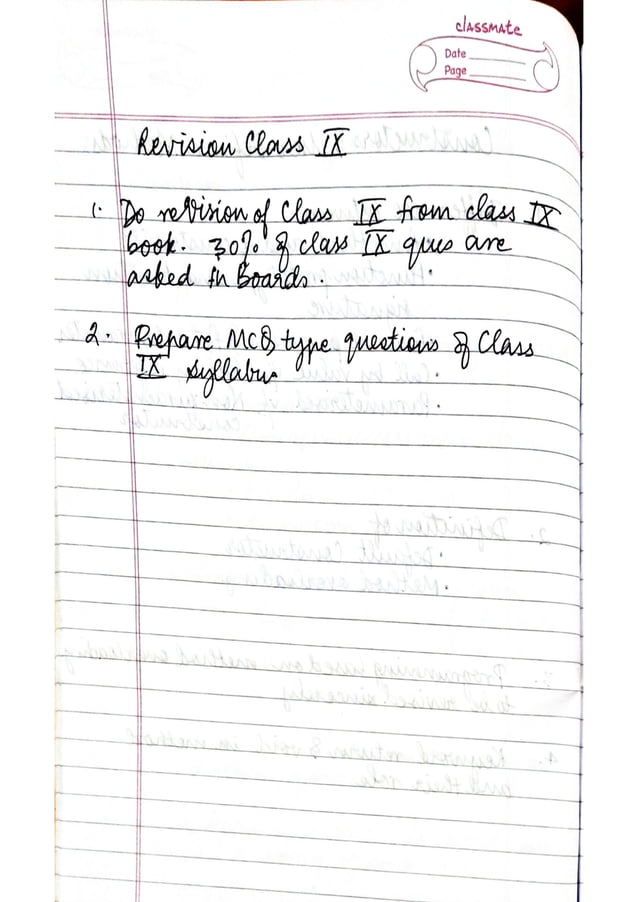 classmate
Date
Page
Revision Class IX
1. Do revision of Class IX from class IX
book. 30% of class IX ques are
asked in Boards.
2. Prepare MCQ type questions of Class
IX syllabus